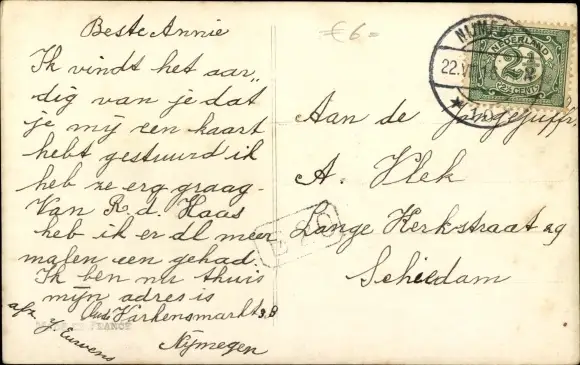 Beste Annie
Ik vindt het aar„
dig van je dat
je mij een kaart
hebt gestuurd ik
heb ze erg graag-
Van R. d. Haas
heb ik er al meer
malen een gehad.
Ik ben nu thuis
mijn adres is
Oude Varkensmarkt 3B
Nijmegen
afz
J. Eurvens
FRANCE
€6=
NIJMEG
22.VII
NEDERLAND
2½
2½ CENT
Aan de Jongejuffr.
A. Vlek
Lange Kerkstraat 29
Schiedam